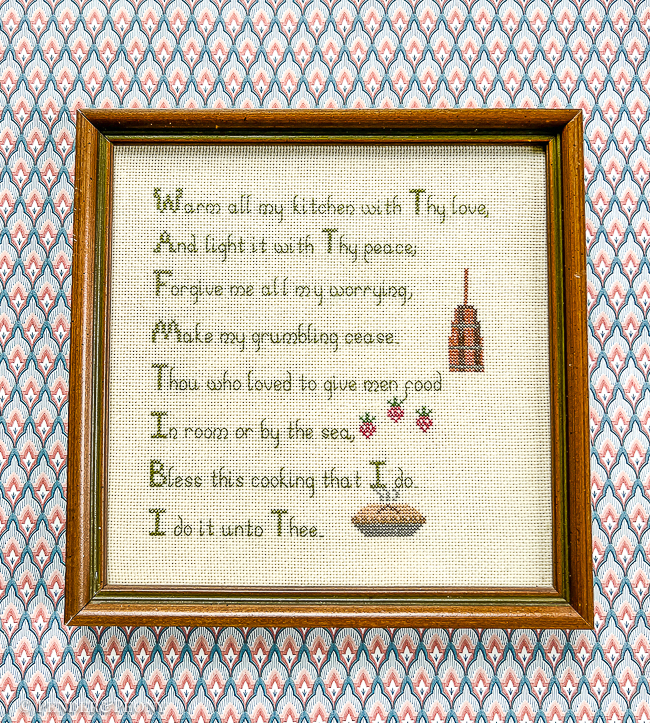 Warm all my kitchen with Thy love,
And light it with Thy peace;
Forgive me all my worrying,
Make my grumbling cease.
Thou who loved to give men food
In room or by the sea,
Bless this cooking that I do
I do it unto Thee.